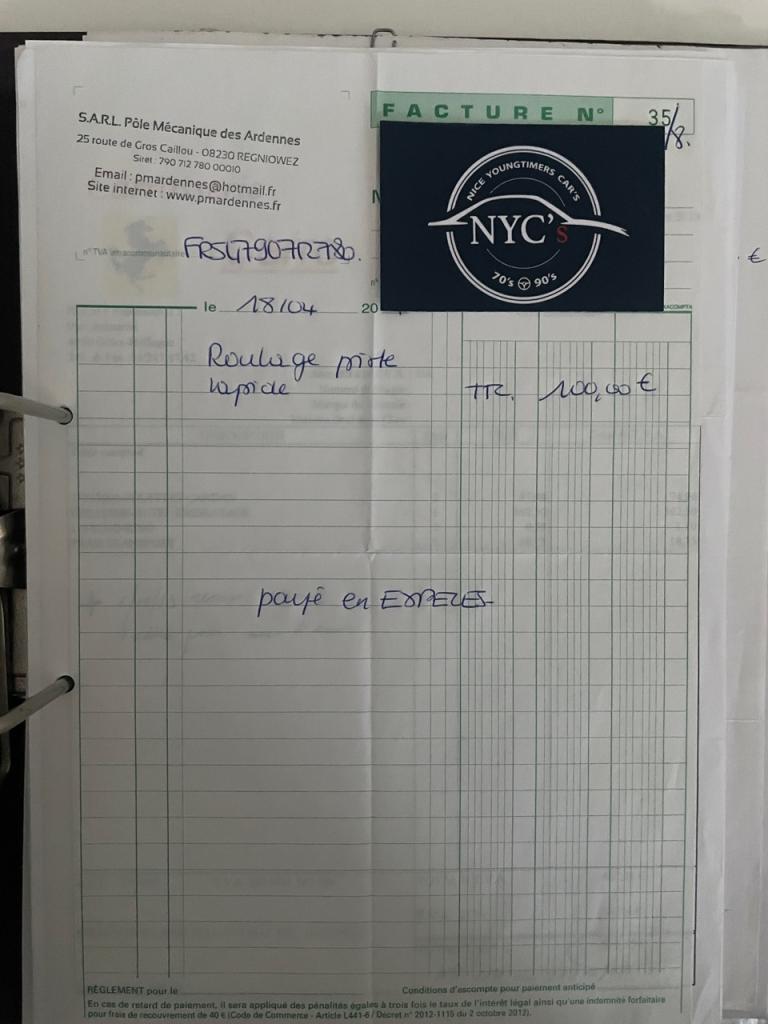 FACTURE N° 35/8.
S.A.R.L. Pôle Mécanique des Ardennes
25 route de Gros Caillou - 08230 REGNIOWEZ
Siret : 790 712 780 00010
Email : pmardennes@hotmail.fr
Site internet : www.pmardennes.fr
NICE YOUNGTIMERS CAR'S
NYC's
70's 90's
n° TVA intracommunautaire FR54790712780.
€
le 18/04 20
Roulage piste
rapide TTC. 100,00 €
payé en ESPECES
RÈGLEMENT pour le Conditions d'escompte pour paiement anticipé
En cas de retard de paiement, il sera appliqué des pénalités égales à trois fois le taux de l'intérêt légal ainsi qu'une indemnité forfaitaire
pour frais de recouvrement de 40 € (Code de Commerce - Article L441-6 / Décret n° 2012-1115 du 2 octobre 2012).